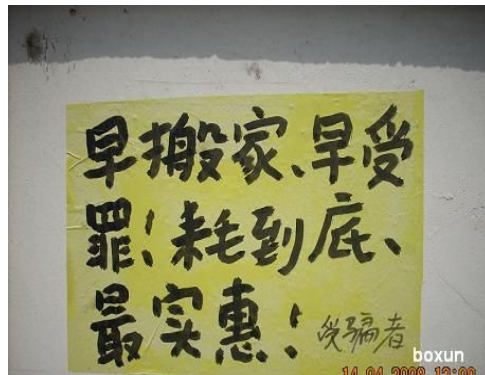 早搬家、早受
罪！耗到底、
最实惠！
受骗者
boxun
14.04.2008 12:00